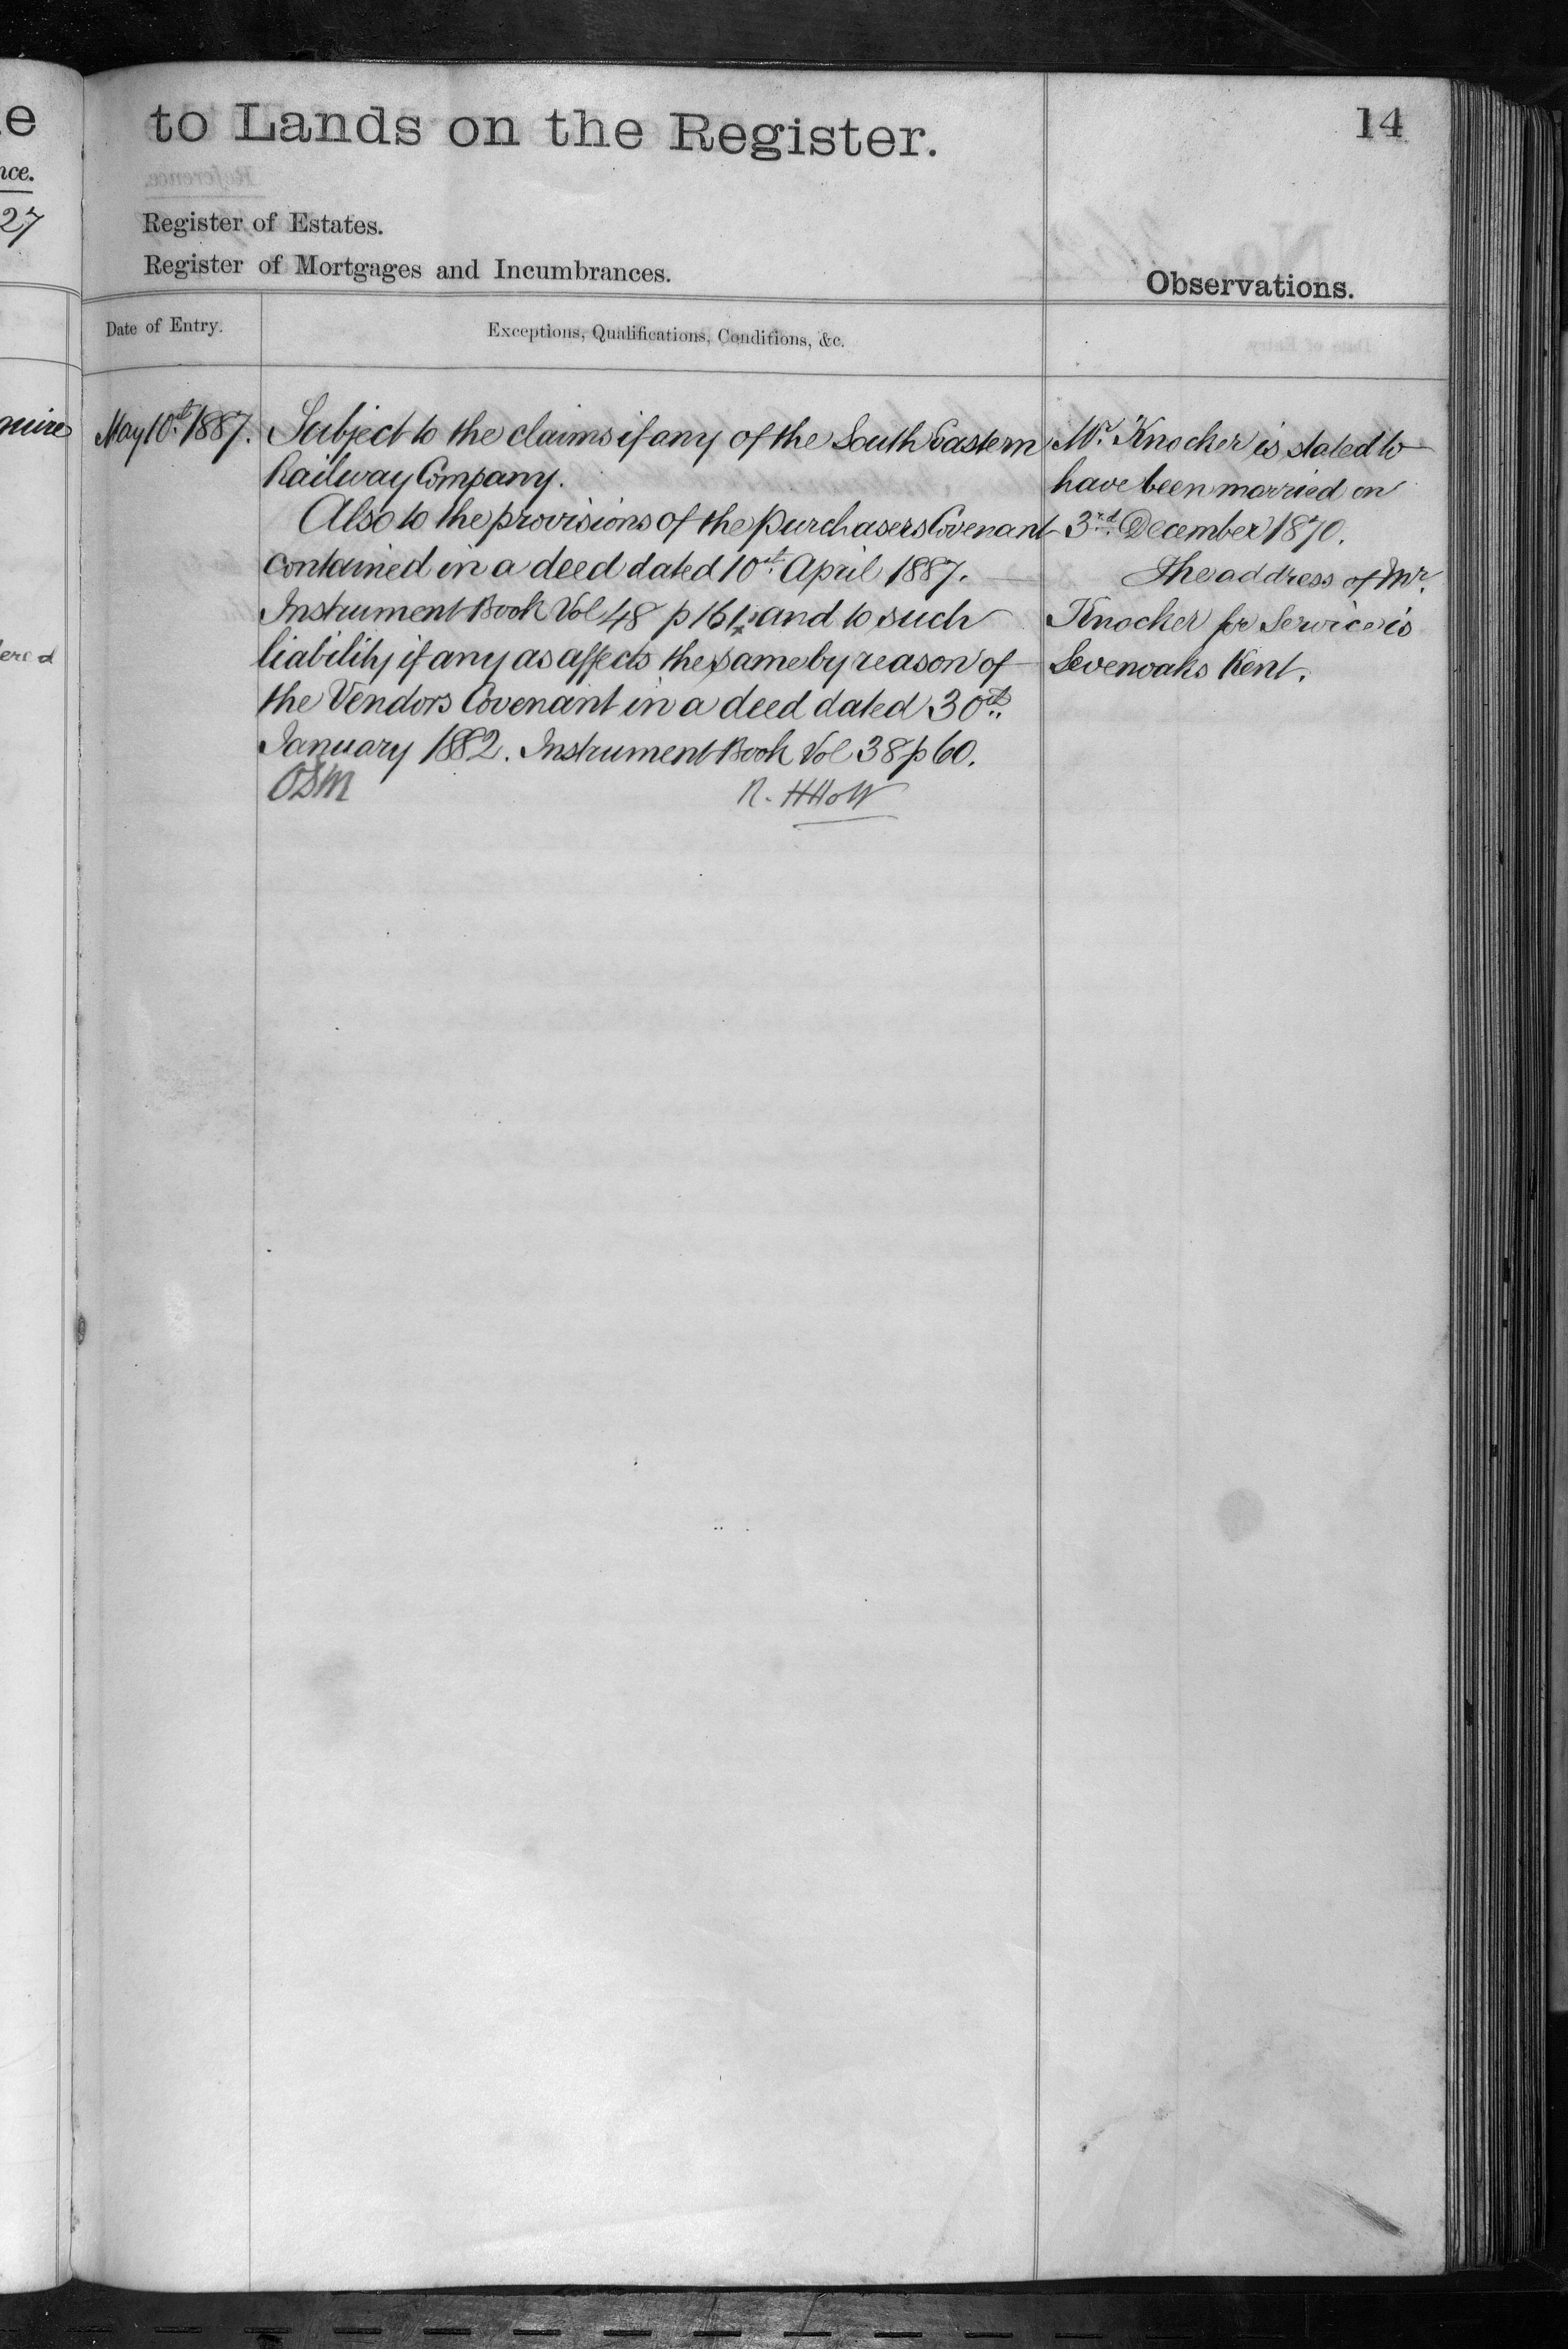 e
nce.
27
ered
to Lands on the Register.
14
Register of Estates.
Register of Mortgages and Incumbrances.
Observations.
Date of Entry.
Exceptions, Qualifications, Conditions, &c.
May 10th 1887.
Subject to the claims if any of the South Eastern
Railway Company.
Also to the provisions of the purchasers Covenant
contained in a deed dated 10th April 1887.
Instrument Book Vol 48 p 161, and to such
liability if any as affects the same by reason of
the Vendors Covenant in a deed dated 30th
January 1882. Instrument Book Vol 38 p 60.
OSM
R. H Holt
Mr. Knocker is stated to
have been married on
3rd December 1870.
The address of Mr.
Knocker for Service is
Sevenoaks Kent.